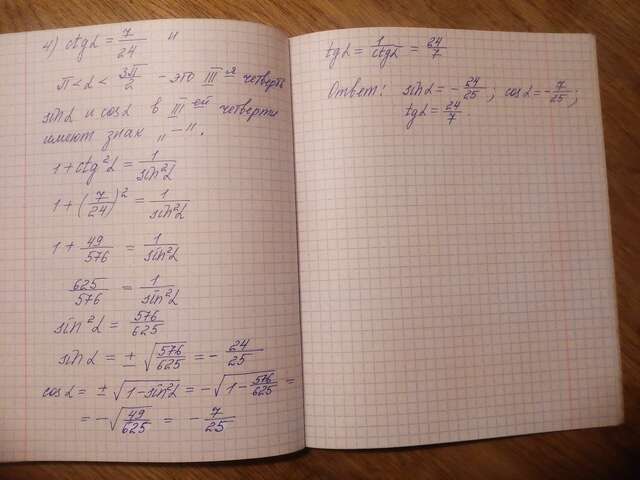 4) ctgα = 7/24 и
π < α < 3π/2 - это III я четверть
sinα и cosα в III ей четверти
имеют знак „-".
1 + ctg²α = 1/sin²α
1 + (7/24)² = 1/sin²α
1 + 49/576 = 1/sin²α
625/576 = 1/sin²α
sin²α = 576/625
sinα = ± √(576/625) = - 24/25
cosα = ± √(1 - sin²α) = - √(1 - 576/625) =
= - √(49/625) = - 7/25
tgα = 1/ctgα = 24/7
Ответ: sinα = - 24/25; cosα = - 7/25;
tgα = 24/7.